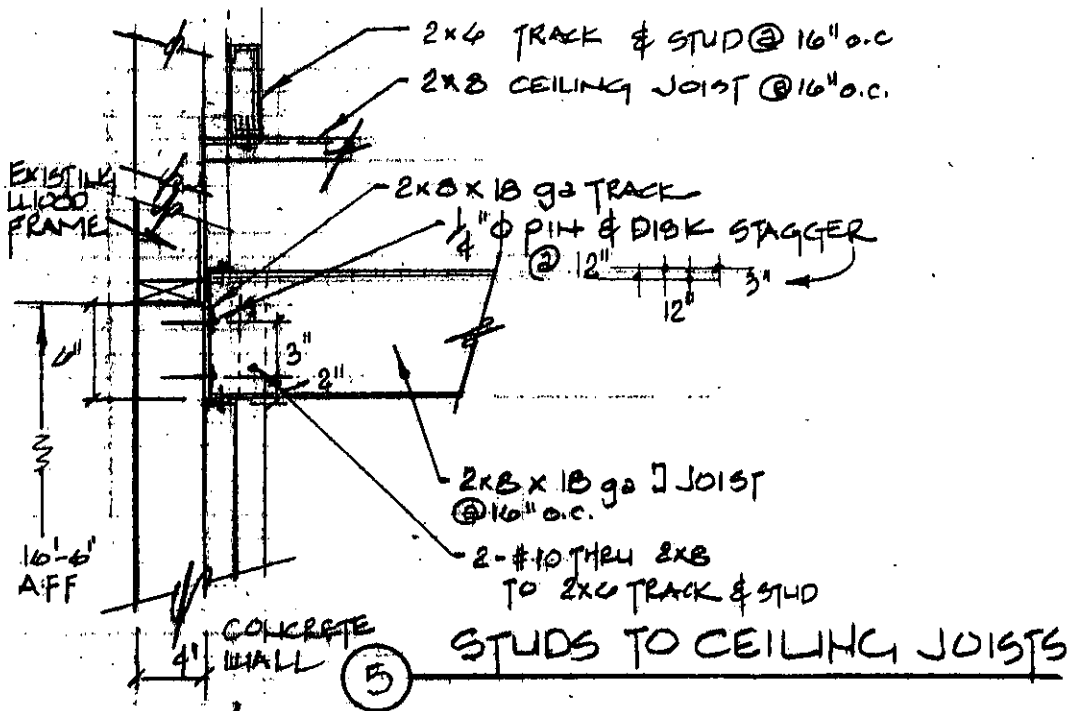 2x6 TRACK & STUD @ 16" o.c
2x8 CEILING JOIST @ 16" o.c.
EXISTING
WOOD
FRAME
2x8 x 18 ga TRACK
1/4" Ø PIN & DISK STAGGER
@ 12"
3"
12"
6"
3"
2"
2x8 x 18 ga ] JOIST
@ 16" o.c.
16'-6"
A.F.F
2-#10 THRU 2x8
TO 2x6 TRACK & STUD
CONCRETE
WALL
4'
5
STUDS TO CEILING JOISTS